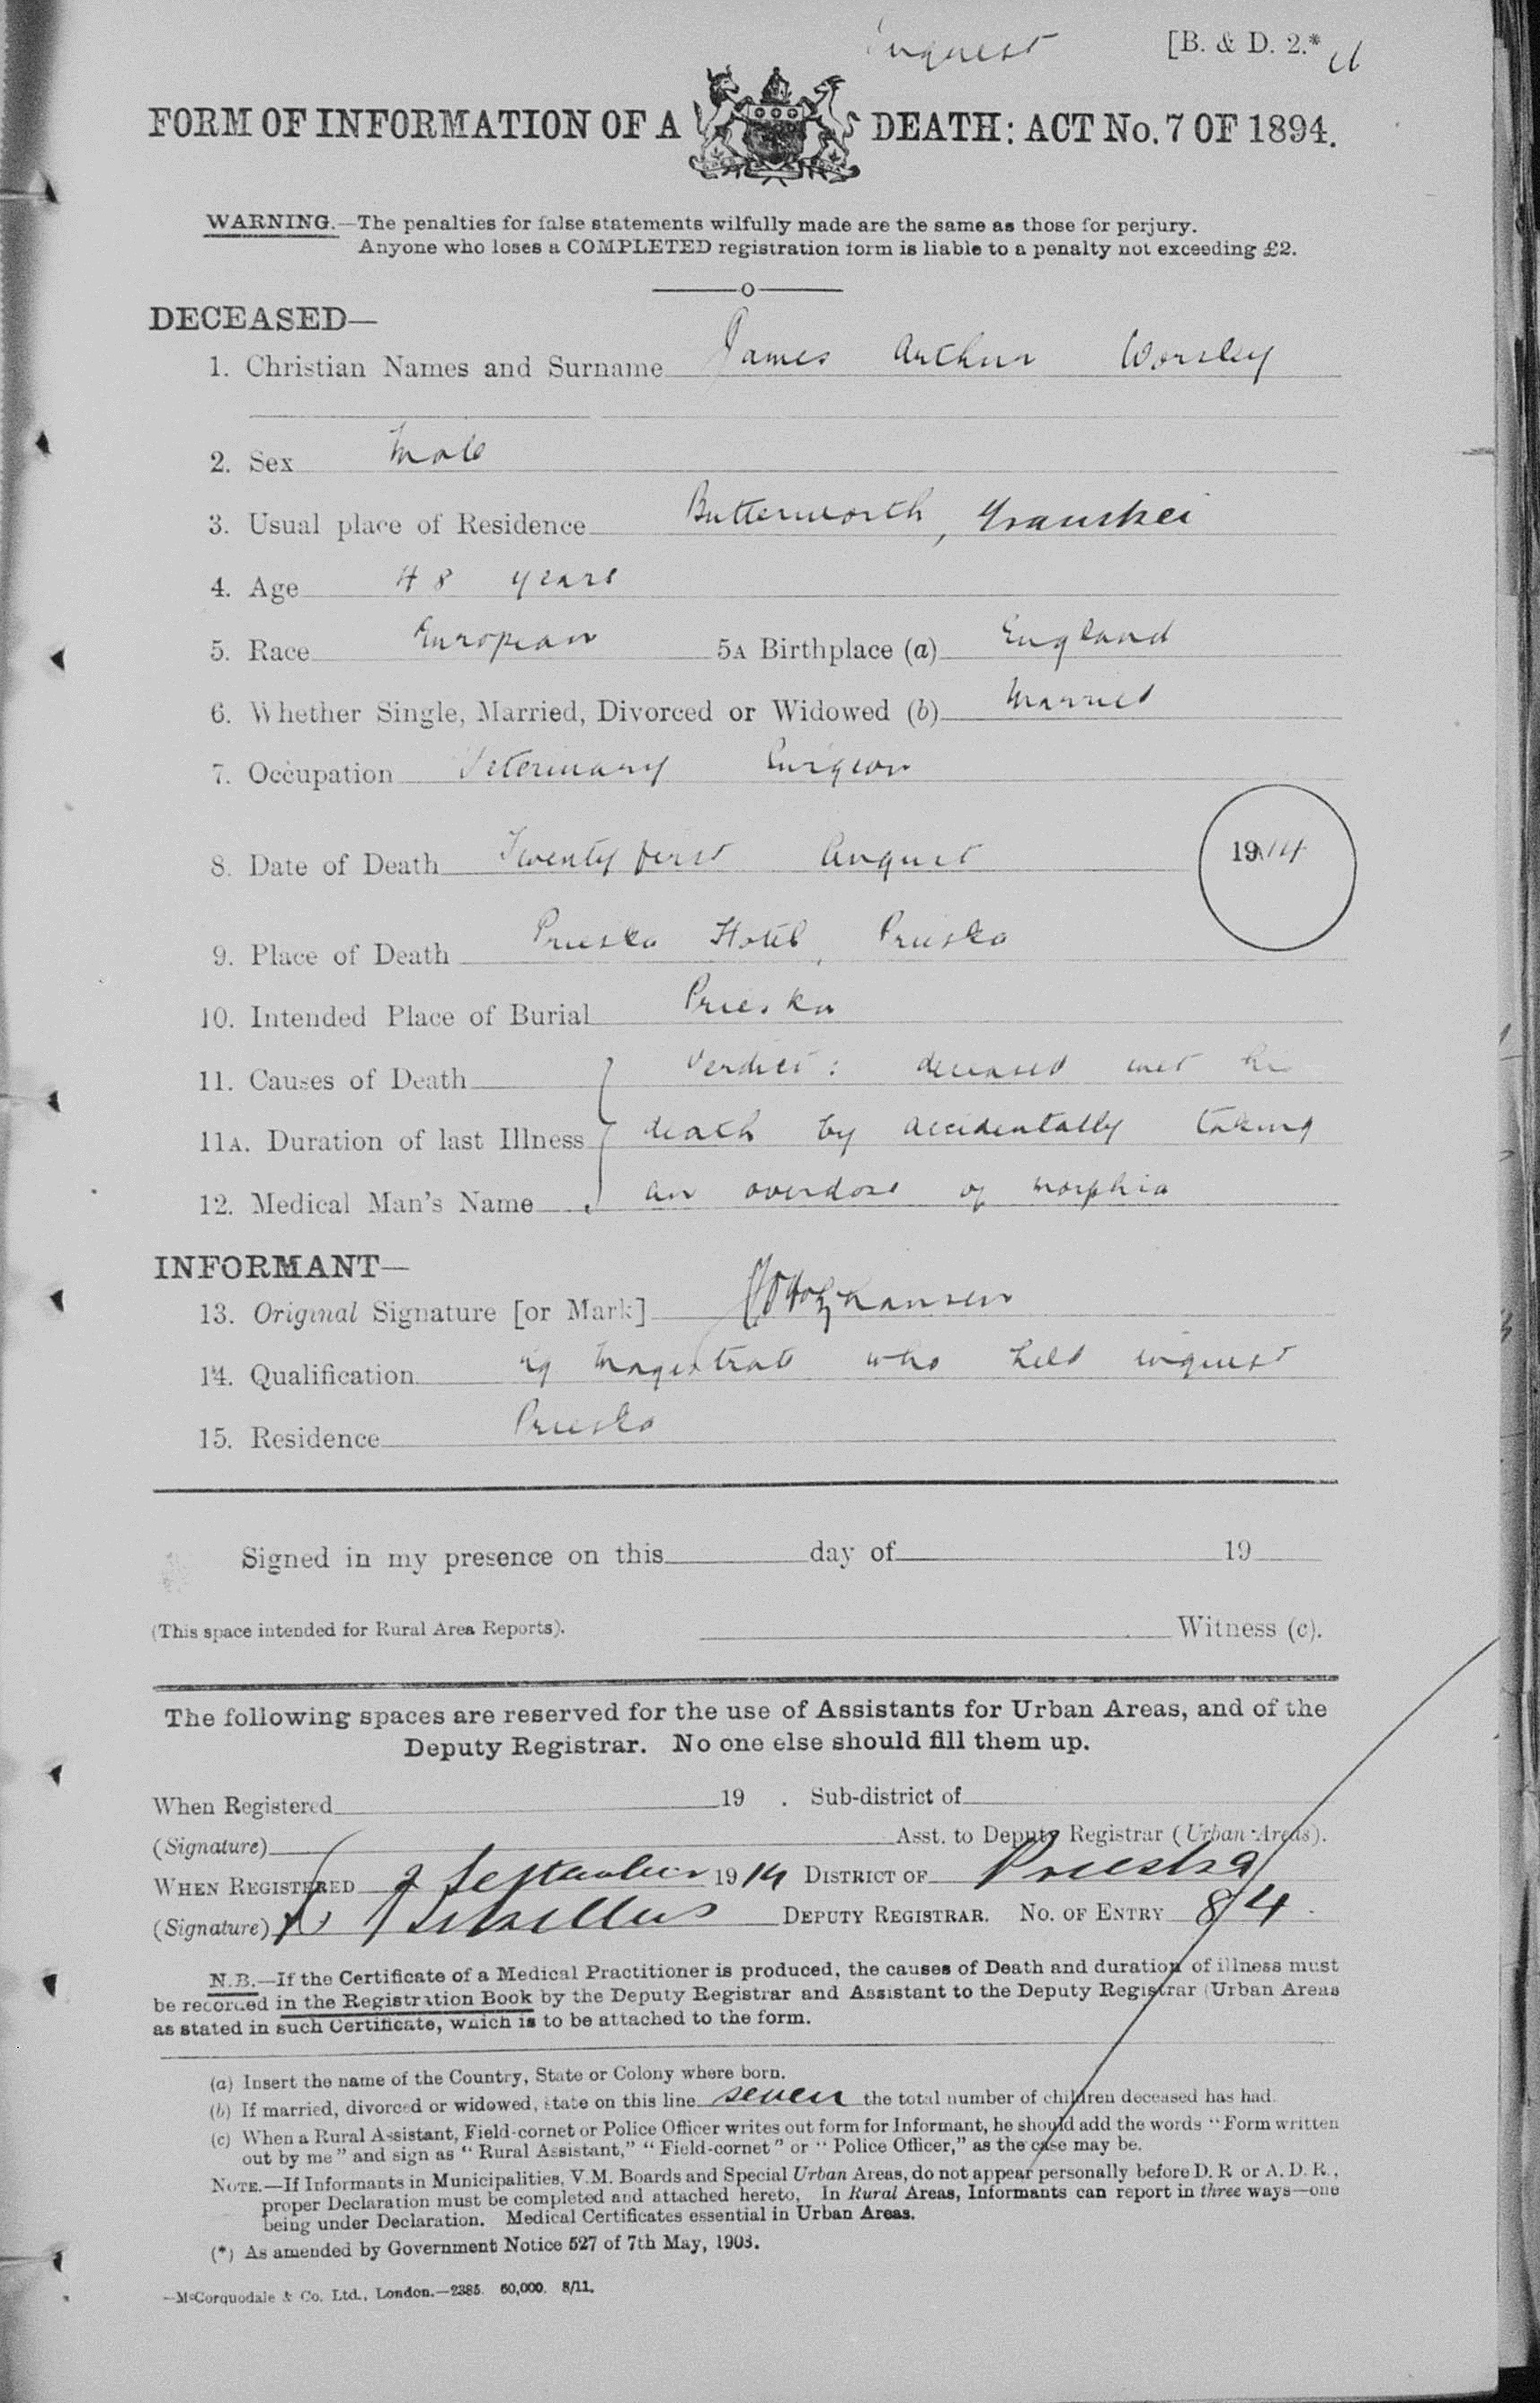 Inquest
[B. & D. 2.*
FORM OF INFORMATION OF A DEATH: ACT No. 7 OF 1894.
WARNING.—The penalties for false statements wilfully made are the same as those for perjury.
Anyone who loses a COMPLETED registration form is liable to a penalty not exceeding £2.
DECEASED—
1. Christian Names and Surname James Arthur Worsley
2. Sex Male
3. Usual place of Residence Butterworth, Transkei
4. Age 48 years
5. Race European 5A Birthplace (a) England
6. Whether Single, Married, Divorced or Widowed (b) Married
7. Occupation Veterinary Surgeon
8. Date of Death Twenty first August 1914
9. Place of Death Prieska Hotel, Prieska
10. Intended Place of Burial Prieska
11. Causes of Death Verdict: deceased met his
11A. Duration of last Illness death by accidentally taking
12. Medical Man's Name an overdose of morphia
INFORMANT—
13. Original Signature [or Mark]
14. Qualification Magistrate who held inquest
15. Residence Prieska
Signed in my presence on this day of 19
(This space intended for Rural Area Reports). Witness (c).
The following spaces are reserved for the use of Assistants for Urban Areas, and of the
Deputy Registrar. No one else should fill them up.
When Registered 19 . Sub-district of
(Signature) Asst. to Deputy Registrar (Urban Areas).
WHEN REGISTERED 2 September 1914 DISTRICT OF Prieska
(Signature) DEPUTY REGISTRAR. No. OF ENTRY 84
N.B.—If the Certificate of a Medical Practitioner is produced, the causes of Death and duration of illness must
be recorded in the Registration Book by the Deputy Registrar and Assistant to the Deputy Registrar (Urban Areas
as stated in such Certificate, which is to be attached to the form.
(a) Insert the name of the Country, State or Colony where born.
(b) If married, divorced or widowed, state on this line seven the total number of children deceased has had.
(c) When a Rural Assistant, Field-cornet or Police Officer writes out form for Informant, he should add the words "Form written
out by me" and sign as "Rural Assistant," "Field-cornet" or "Police Officer," as the case may be.
NOTE.—If Informants in Municipalities, V.M. Boards and Special Urban Areas, do not appear personally before D. R. or A. D. R.,
proper Declaration must be completed and attached hereto. In Rural Areas, Informants can report in three ways—one
being under Declaration. Medical Certificates essential in Urban Areas.
(*) As amended by Government Notice 527 of 7th May, 1903.
—McCorquodale & Co. Ltd., London.—2385. 60,000. 8/11.